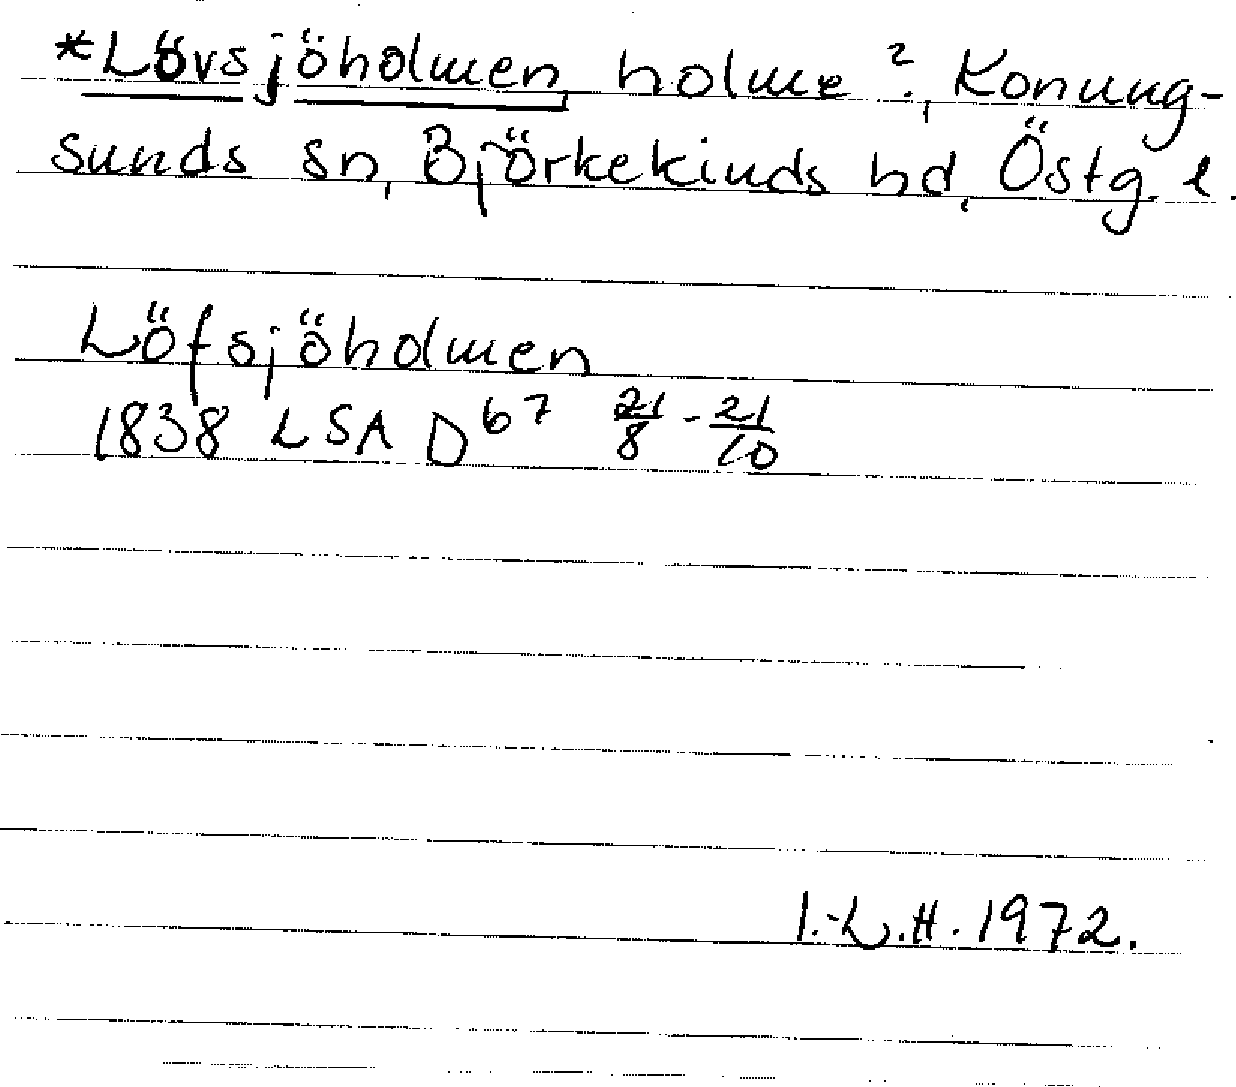 *Lövsjöholmen, holme?, Konung-
sunds sn, Björkekinds hd, Östg. l.
Löfsjöholmen
1838 LSA D67 21/8 - 21/10
I.-L.H. 1972.